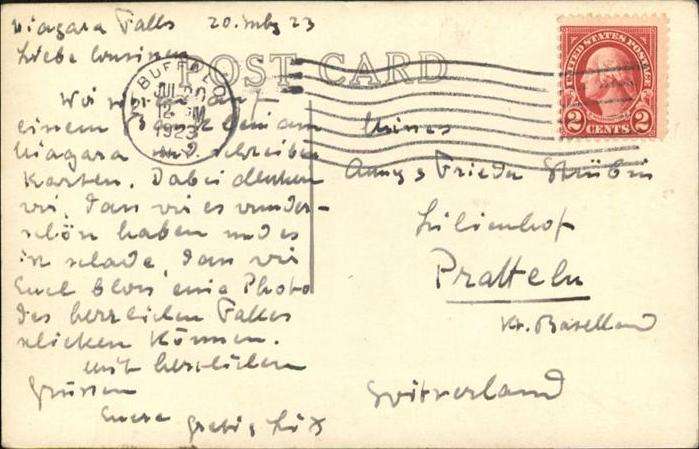 Niagara Falls 20. July 23
Liebe Cousinen
POST CARD
BUFFALO
JUL 20
12 M
1923
N.Y.
UNITED STATES POSTAGE
2 CENTS 2
Wir
einem Bank beim
Niagara und schreiben
Karten. Dabei denken
wir, dass wir es wunder-
schön haben und es
ist schade, dass wir
Euch bloss eine Photo
des herrlichen Falles
schicken können.
mit herzlichen
Grüssen
Euere
Annÿ & Frieda Stüblin
Lilienhof
Pratteln
Kt. Baselland
Switzerland